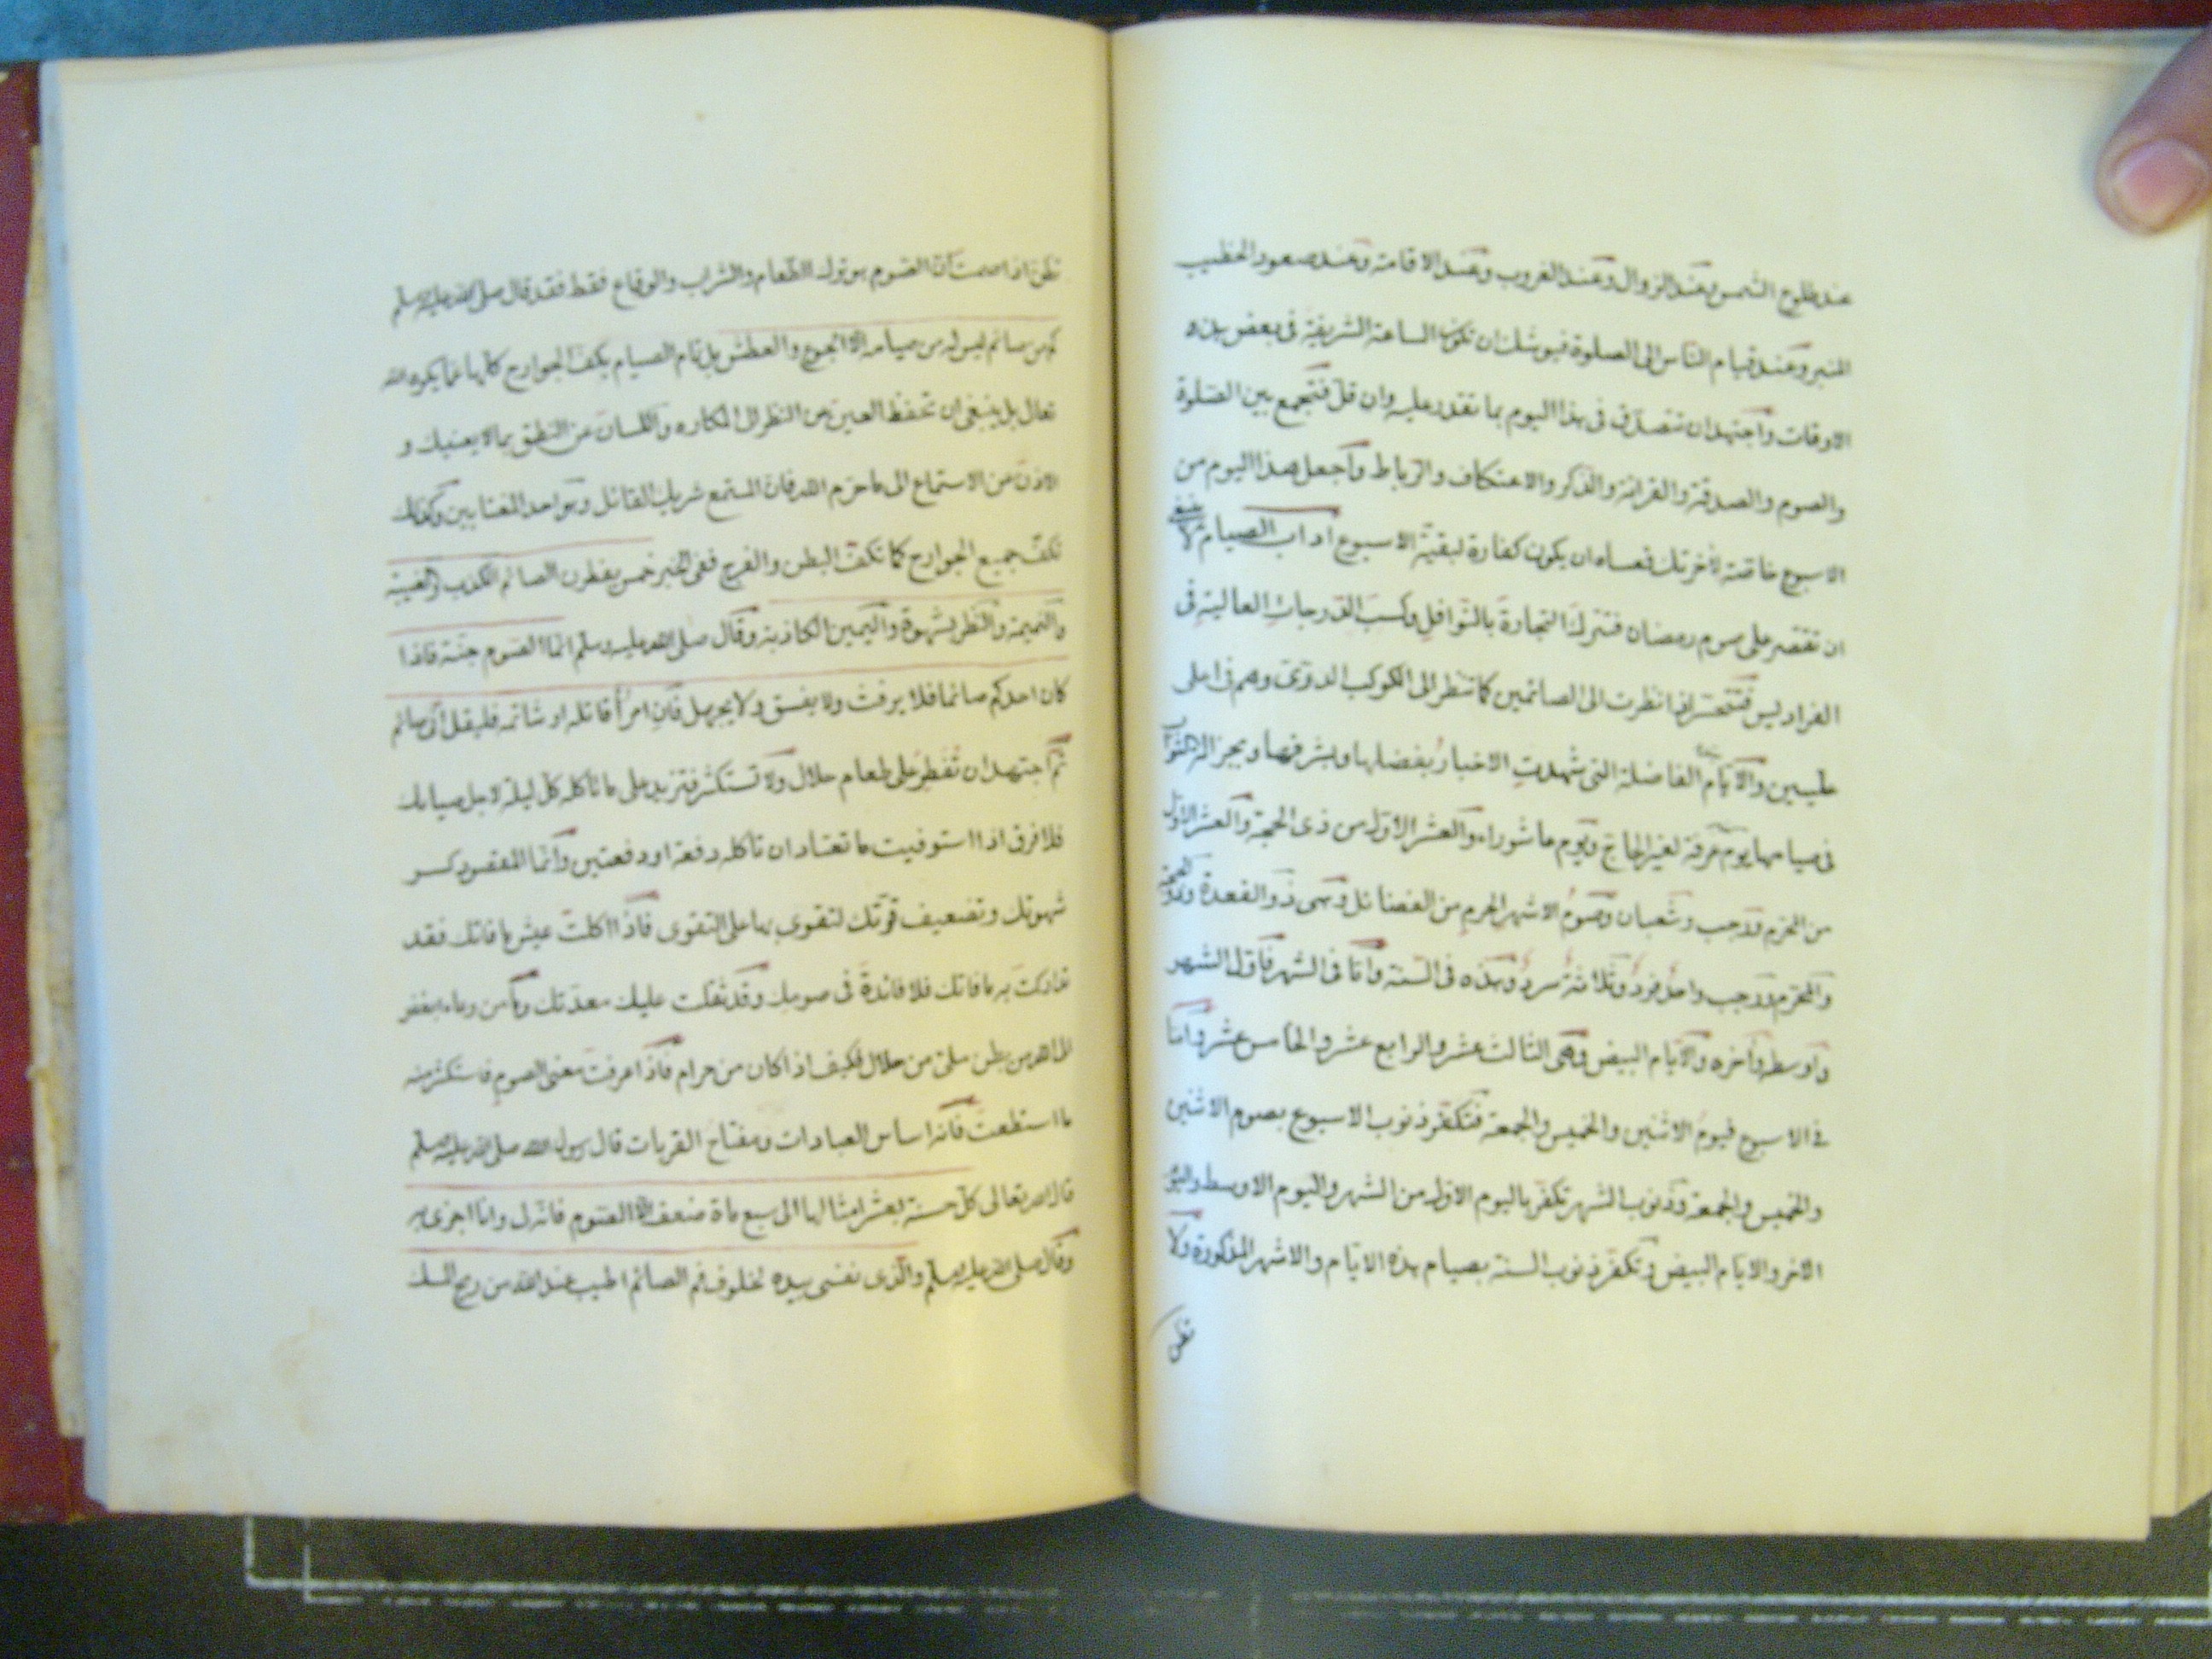 عند طلوع الشمس وعند الزوال وعند الغروب وعند الاقامة وعند صعود الخطيب
المنبر وعند قيام الناس الى الصلوة فيوشك ان تكون الساعة الشريفة فى بعض هذه
الاوقات واجتهد ان تتصدق فى هذا اليوم بما تقدر عليه وان قل فتجمع بين الصلوة
والصوم والصدقة والقرائة والذكر والاعتكاف والرباط واجعل هذا اليوم من
الاسبوع خاصة لآخرتك فعساه ان يكون كفارة لبقية الاسبوع اداب الصيام لا ينبغى
ان تقتصر على صوم رمضان فتترك التجارة بالنوافل وكسب الدرجات العالية فى
الفراديس فتتحسّر اذا نظرت الى الصائمين كما تنظر الى الكوكب الدرّى وهم فى اعلى
عليين والايام الفاضلة التى شهدت الاخبار بفضلها وبشرفها وبجزالة الثواب
فى صيامها يوم عرفة لغير الحاج ويوم عاشوراء والعشر الاول من ذى الحجة والعشر الاول
من المحرم ورجب وشعبان وصوم الاشهر الحرم من الفضائل وهى ذو القعدة وذو الحجة
والمحرم ورجب واحد فرد وثلاثة سرد وهذه فى السنة وامّا فى الشهر فاول الشهر
واوسطه وآخره والايام البيض وهى الثالث عشر والرابع عشر والخامس عشر وامّا
فى الاسبوع فيوم الاثنين والخميس والجمعة فتكفّر ذنوب الاسبوع بصوم الاثنين
والخميس والجمعة وذنوب الشهر تكفّر باليوم الاول من الشهر واليوم الاوسط واليوم
الاخر والايام البيض وتكفّر ذنوب السنة بصيام هذه الايام والاشهر المذكورة ولا
تظن
تظن اذا صمت ان الصوم هو ترك الطعام والشراب والوقاع فقط فقد قال صلى الله عليه وسلم
كم من صائم ليس له من صيامه الا الجوع والعطش بل تمام الصيام بكف الجوارح كلها عما يكره الله
تعالى بل ينبغى ان تحفظ العين من النظر الى المكاره واللسان عن النطق بما لا يعنيك و
الاذن من الاستماع الى ما حرم الله فان المستمع شريك القائل وهو احد المغتابين وكذلك
تكف جميع الجوارح كما تكف البطن والفرج ففى الخبر خمس يفطرن الصائم الكذب والغيبة
والنميمة والنظر بشهوة واليمين الكاذبة وقال صلى الله عليه وسلم انما الصوم جنة فاذا
كان احدكم صائما فلا يرفث ولا يفسق ولا يجهل فان امرأ قاتله او شاتمه فليقل انى صائم
ثم اجتهد ان تفطر على طعام حلال ولا تستكثر فتزيد على ما تأكله كل ليلة لاجل صيامك
فلا فرق اذا استوفيت ما تعتاد ان تأكله دفعة او دفعتين وانما المقصود كسر
شهوتك وتضعيف قوتك لتقوى بها على التقوى فاذا اكلت عيش ما فاتك فقد
تداركت به ما فاتك فلا فائدة فى صومك وقد ثقلت عليك معدتك وما من وعاء ابغض
الى الله من بطن ملئ من حلال فكيف اذا كان من حرام فاذا عرفت معنى الصوم فاستكثر منه
ما استطعت فانه اساس العبادات ومفتاح القربات قال رسول الله صلى الله عليه وسلم
قال الله تعالى كل حسنة بعشر امثالها الى سبع مأة ضعف الا الصوم فانه لى وانا اجزى به
وقال صلى الله عليه وسلم والذى نفسى بيده لخلوف فم الصائم اطيب عند الله من ريح المسك